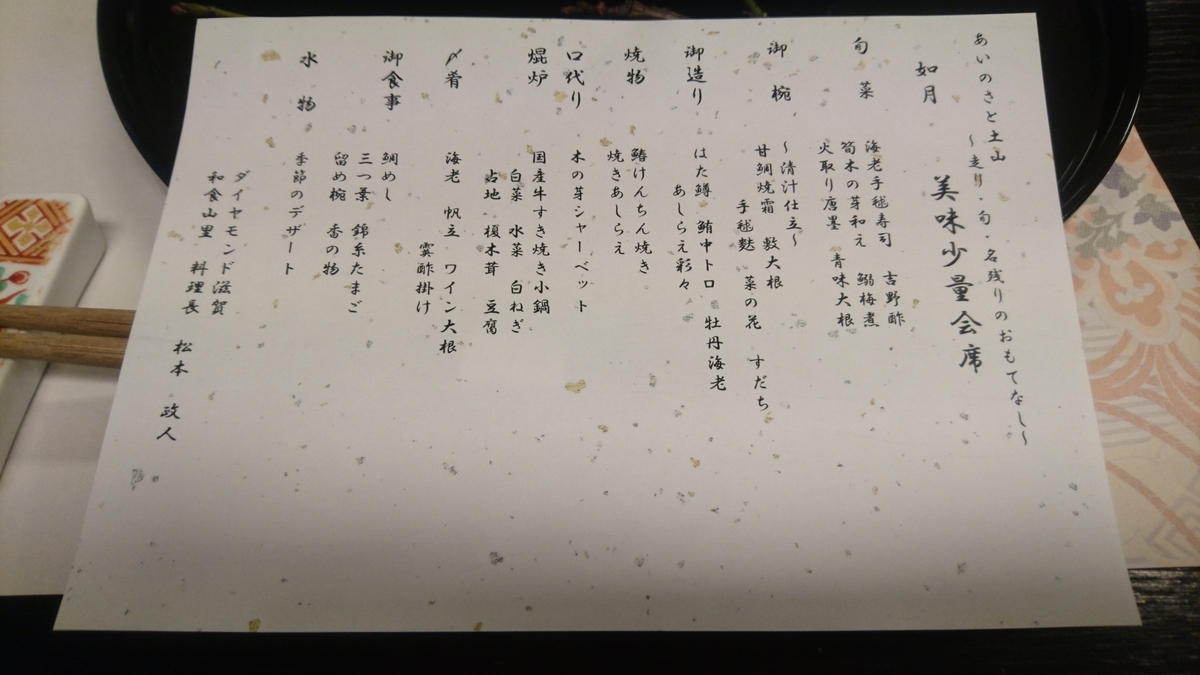 あいのさと土山
～走り・旬・名残りのおもてなし～
如月
美味少量会席
旬菜
海老手毬寿司 吉野酢
筍木の芽和え 鰯梅煮
火取り唐墨 青味大根
御椀
～清汁仕立～
甘鯛焼霜 敷大根
手毬麩 菜の花 すだち
御造り
はた鱒 鮪中トロ 牡丹海老
あしらえ彩々
焼物
鰆けんちん焼き
焼きあしらえ
口代り
木の芽シャーベット
焜炉
国産牛すき焼き小鍋
白菜 水菜 白ねぎ
占地 榎木茸 豆腐
〆肴
海老 帆立 ワイン大根
霙酢掛け
御食事
鯛めし
三つ葉 錦糸たまご
留め椀 香の物
水物
季節のデザート
ダイヤモンド滋賀
和食山里 料理長 松本 政人